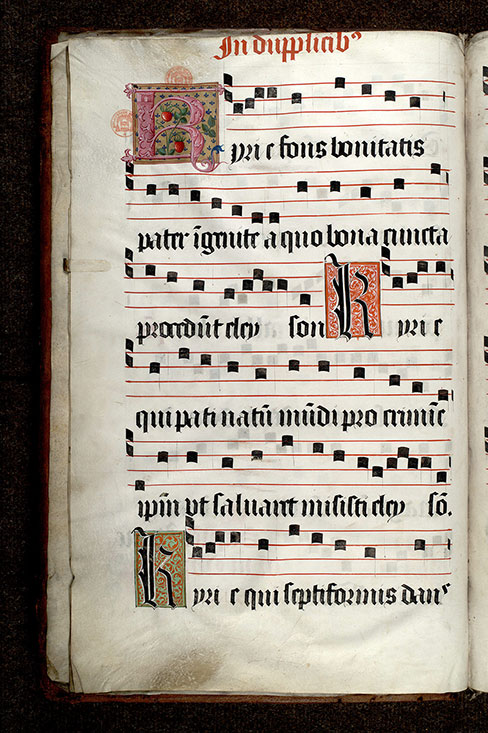 In dupplicibꝰ
Kyrie fons bonitatis
pater īgenite a quo bona cuncta
procedūt eley son Kyrie
qui pati natū mūdi pro crimīe
ipm̄ vt saluaret misisti eley sō.
Kyrie qui septiformis danˢ